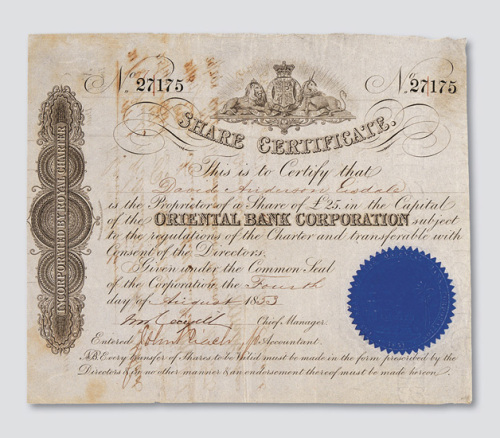 No. 27175 No. 27175
SHARE CERTIFICATE.
INCORPORATED BY ROYAL CHARTER
This is to Certify that
David Anderson
is the Proprietor of a Share of £25, in the Capital
of the ORIENTAL BANK CORPORATION subject
to the regulations of the Charter and transferable with
Consent of the Directors.
Given under the Common Seal
of the Corporation, the Fourth
day of August 1853
Chief Manager.
Entered John Accountant.
N.B. Every transfer of Shares to be Valid must be made in the form prescribed by the
Directors & in no other manner & an endorsement thereof must be made hereon.